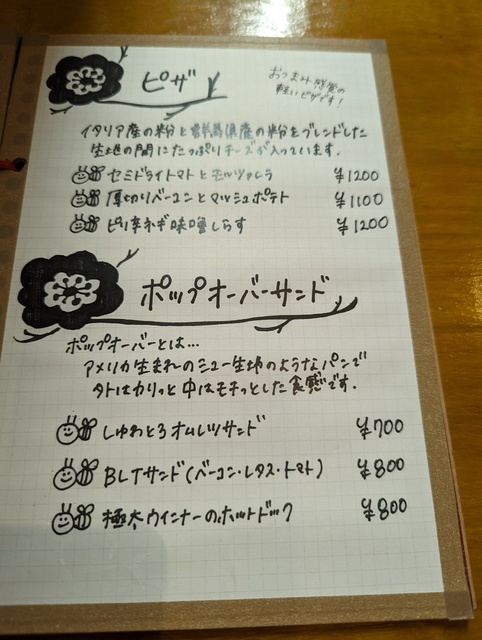 ピザ
おつまみ感覚の
軽いピザです!
イタリア産の粉と群馬県産の粉をブレンドした
生地の間にたっぷりチーズが入っています.
セミドライトマトとモッツァレラ ¥1200
厚切りベーコンとマッシュポテト ¥1100
ピリ辛ネギ味噌しらす ¥1200
ポップオーバーサンド
ポップオーバーとは...
アメリカ生まれのシュー生地のようなパンで
外はカリっと中はモチっとした食感です.
しゅわとろオムレツサンド ¥700
BLTサンド(ベーコン・レタス・トマト) ¥800
極太ウインナーのホットドック ¥800